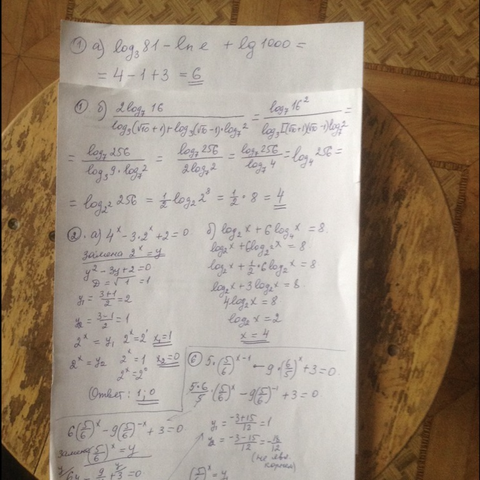 ① а) log₃81 - ln e + lg 1000 =
= 4 - 1 + 3 = 6
① б) 2log₇16 / (log₃(√10+1)+log₃(√10-1)·log₇2) = log₇16² / (log₃[(√10+1)(√10-1)]log₇2) =
= log₇256 / (log₃9·log₇2) = log₇256 / (2log₇2) = log₇256 / log₇4 = log₄256 =
= log₂² 256 = 1/2·log₂2⁸ = 1/2·8 = 4
② а) 4ˣ - 3·2ˣ + 2 = 0
замена 2ˣ = y
y² - 3y + 2 = 0
D = √1 = 1
y₁ = (3+1)/2 = 2
y₂ = (3-1)/2 = 1
2ˣ = y₁ 2ˣ = 2¹ x₁ = 1
2ˣ = y₂ 2ˣ = 1 x₂ = 0
2ˣ = 2⁰
Ответ: 1; 0
б) log₂x + 6log₄x = 8
log₂x + 6log₂²x = 8
log₂x + 1/2·6log₂x = 8
log₂x + 3log₂x = 8
4log₂x = 8
log₂x = 2
x = 4
5·(5/6)ˣ⁻¹ - 9·(6/5)ˣ + 3 = 0
5·6/5·(5/6)ˣ - 9(5/6)⁻ˣ + 3 = 0
y₁ = (-3+15)/12 = 1
y₂ = (-3-15)/12 = -18/12
(не явл.
корнем)
(5/6)ˣ = y₁
6(5/6)ˣ - 9(5/6)⁻ˣ + 3 = 0
замена (5/6)ˣ = y
6y - 9/y + 3 = 0